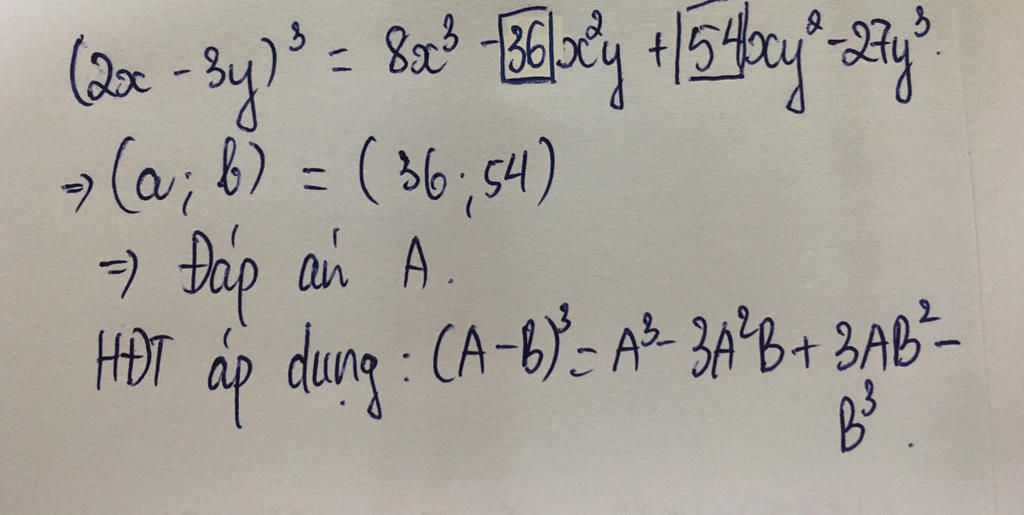 (2x - 3y)³ = 8x³ - 36 x²y + 54 xy² - 27y³.
⇒ (a; b) = (36; 54)
⇒ Đáp án A.
HĐT áp dụng: (A - B)³ = A³ - 3A²B + 3AB² -
B³.